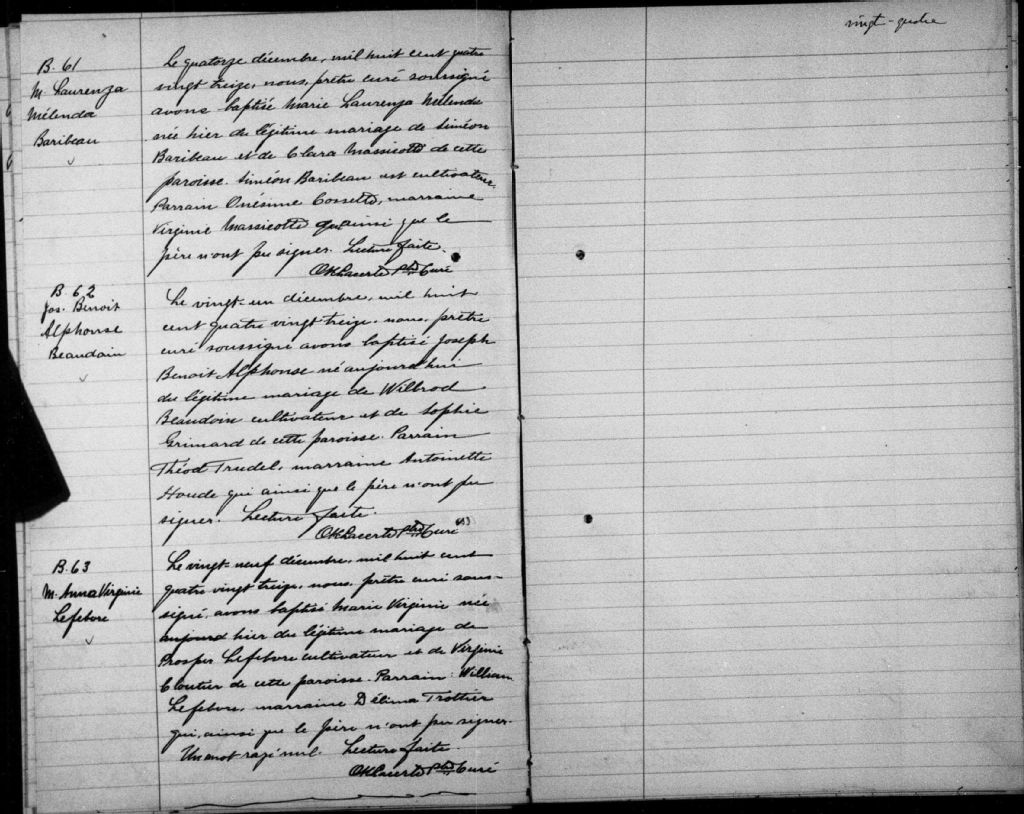 vingt-quatre
B. 61
M. Laurenza
Mélenda
Baribeau
Le quatorze décembre, mil huit cent quatre
vingt treize, nous, prêtre curé soussigné
avons baptisé Marie Laurenza Mélenda
née hier du légitime mariage de Siméon
Baribeau et de Clara Massicotte de cette
paroisse. Siméon Baribeau est cultivateur.
Parrain Onésime Cossette, marraine
Virginie Massicotte qui ainsi que le
père n'ont pu signer. Lecture faite.
Ptre Curé
B. 62
Jos. Benoit
Alphonse
Beaudoin
Le vingt-un décembre, mil huit
cent quatre vingt treize, nous, prêtre
curé soussigné avons baptisé Joseph
Benoit Alphonse né aujourd'hui
du légitime mariage de Wilbrod
Beaudoin cultivateur et de Sophie
Grimard de cette paroisse. Parrain
Théod Trudel, marraine Antoinette
Houde qui ainsi que le père n'ont pu
signer. Lecture faite.
Ptre Curé
B. 63
M. Anna Virginie
Lefebvre
Le vingt-neuf décembre, mil huit cent
quatre vingt treize, nous, prêtre curé sous-
signé, avons baptisé Marie Virginie née
aujourd hier du légitime mariage de
Prosper Lefebvre cultivateur et de Virginie
Cloutier de cette paroisse. Parrain: William
Lefebvre, marraine Délima Trottier
qui, ainsi que le père n'ont pu signer.
Un mot rayé nul. Lecture faite.
Ptre Curé